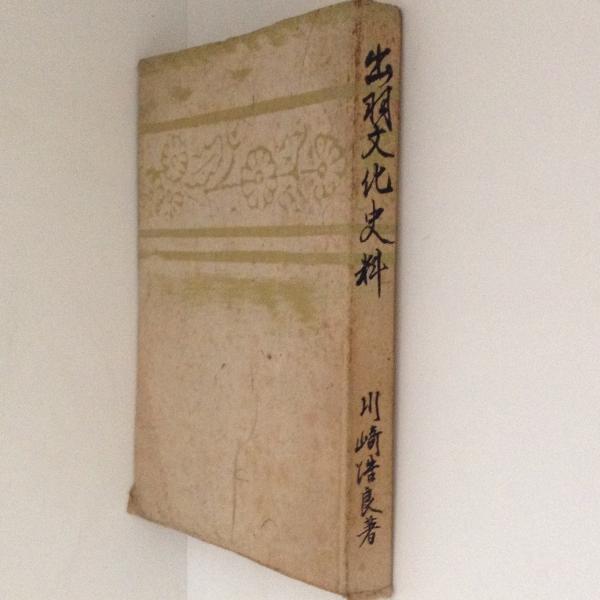 出羽文化史料
川崎浩良著